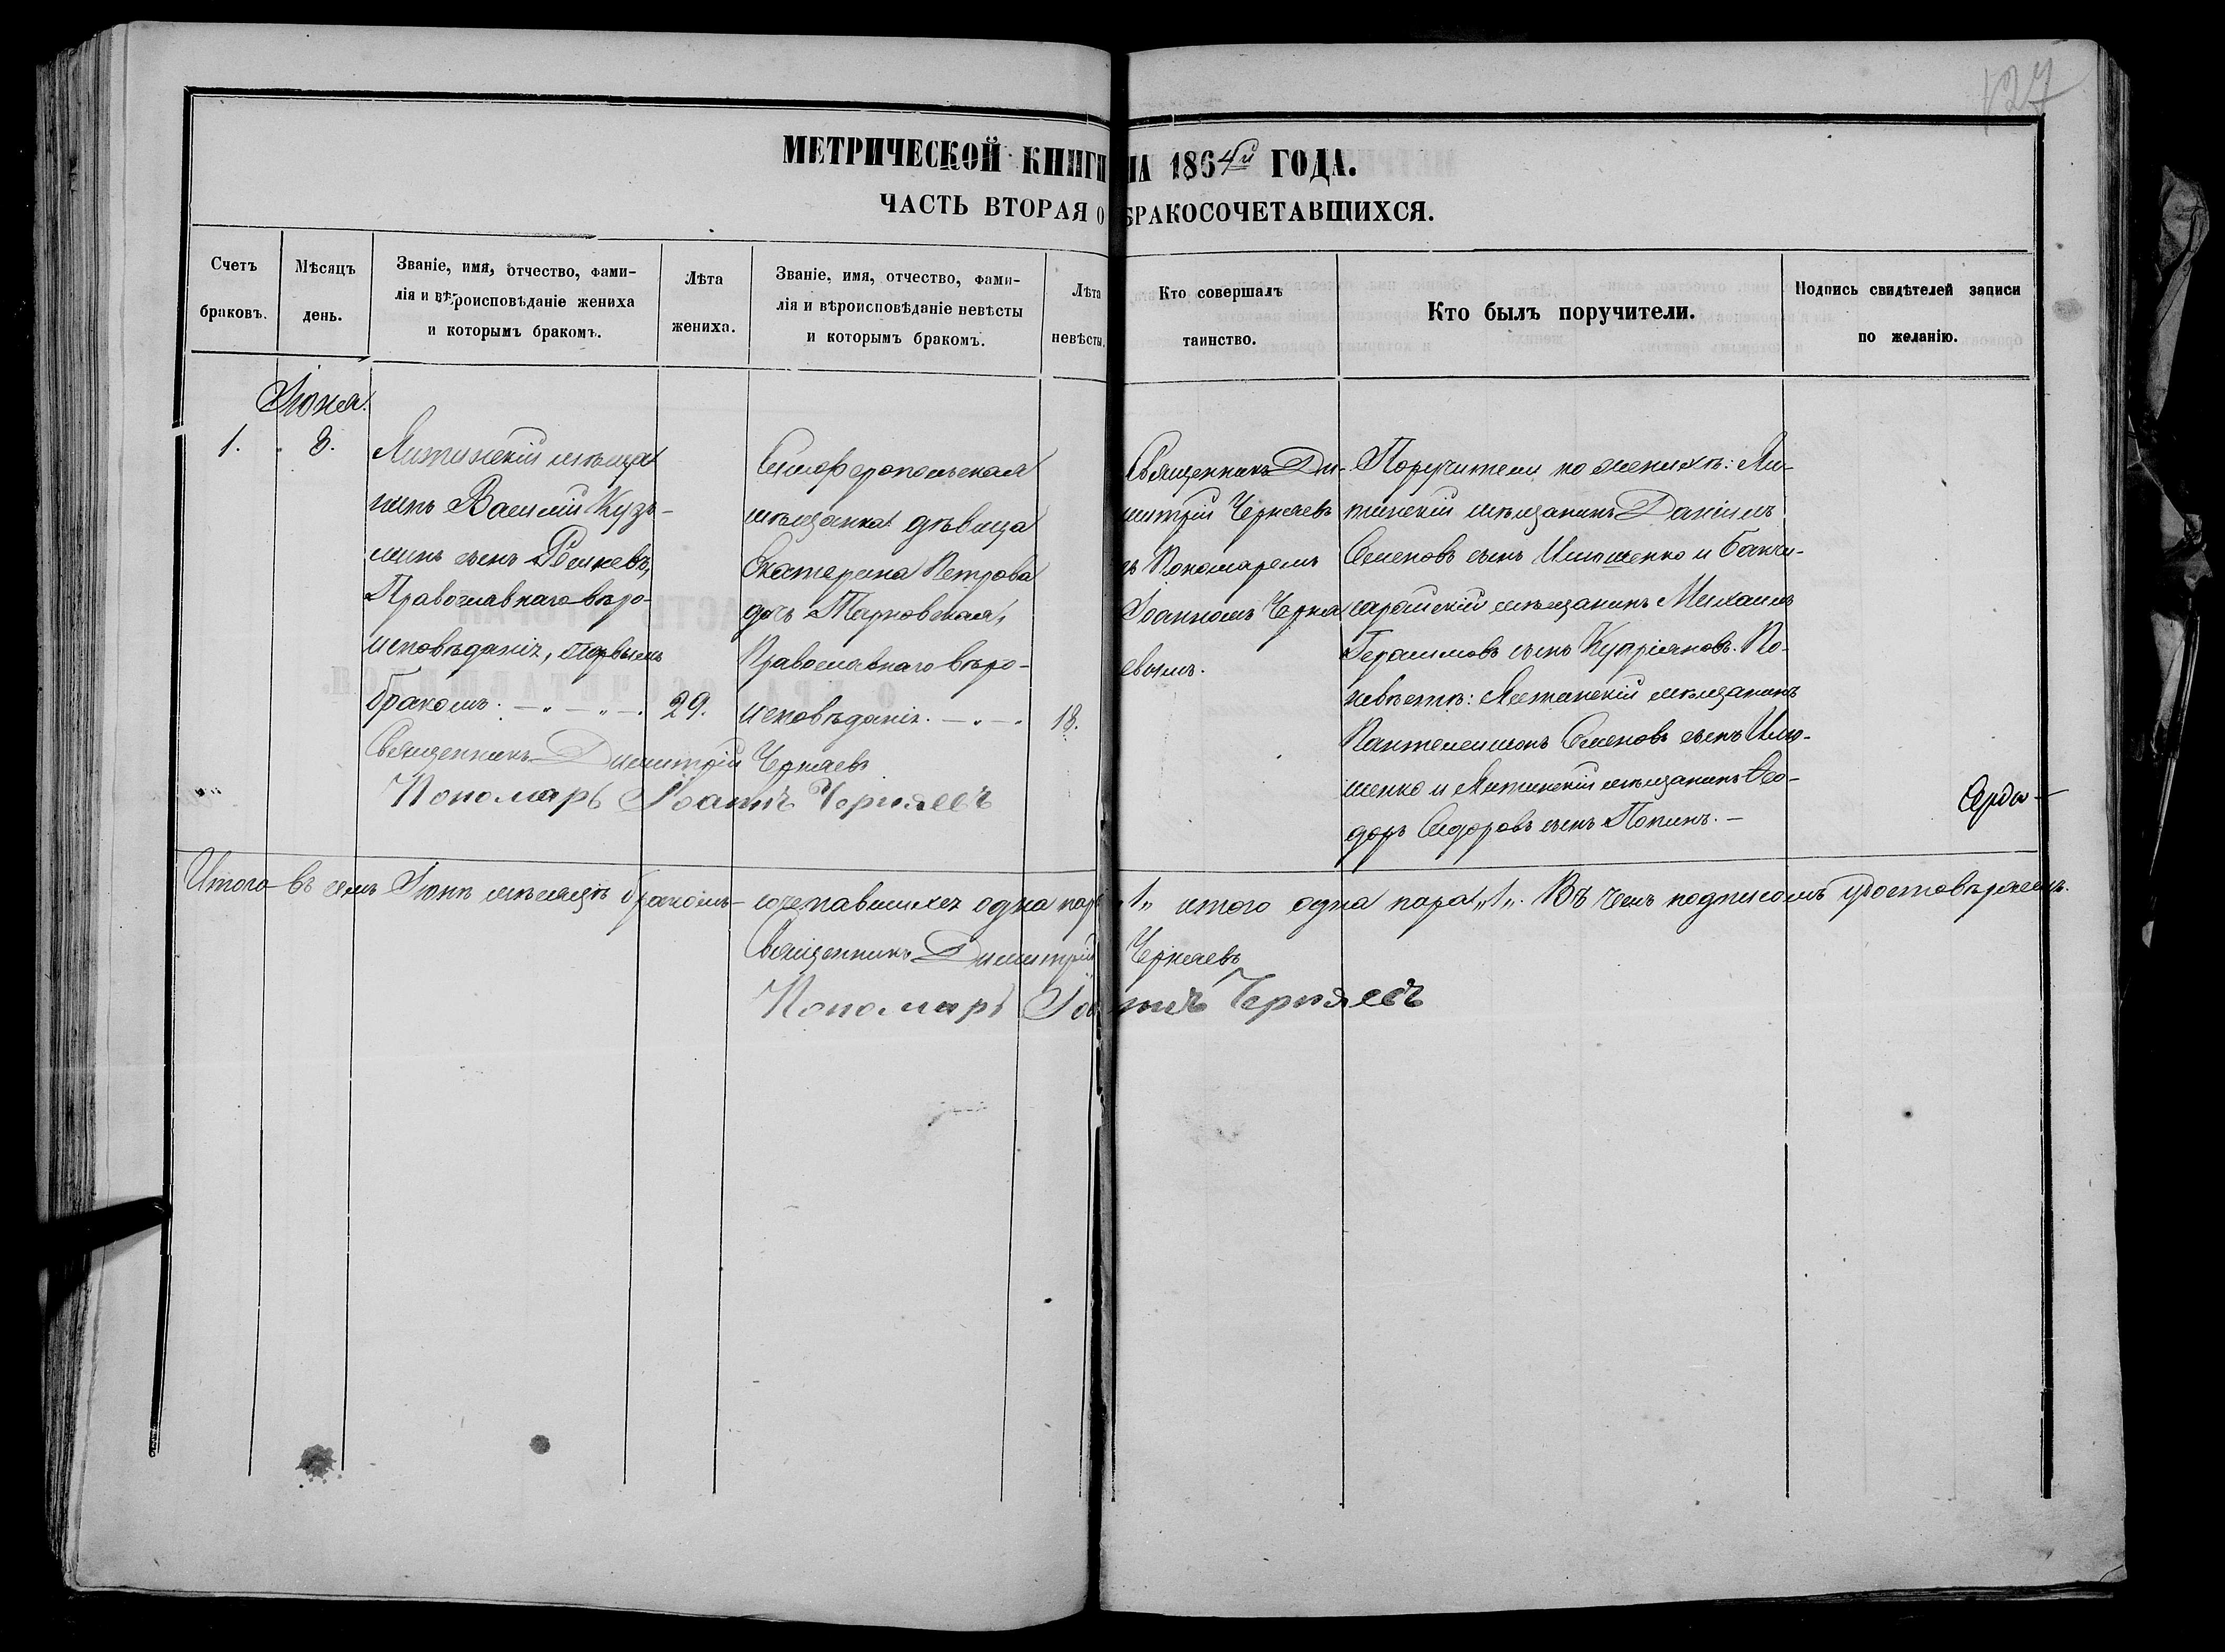 127
МЕТРИЧЕСКОЙ КНИГИ НА 1864й ГОДА.
ЧАСТЬ ВТОРАЯ О БРАКОСОЧЕТАВШИХСЯ.
Счетъ
браковъ.
Мѣсяцъ
день.
Званіе, имя, отчество, фами-
лія и вѣроисповѣданіе жениха
и которымъ бракомъ.
Лѣта
жениха.
Званіе, имя, отчество, фами-
лія и вѣроисповѣданіе невѣсты
и которымъ бракомъ.
Лѣта
невѣсты.
Кто совершалъ
таинство.
Кто былъ поручители.
Подпись свидѣтелей записи
по желанію.
Іюня.
1.
8.
мѣща
нинъ Василій Кузь-
минъ сынъ
Православнаго вѣро-
исповѣданія, первымъ
бракомъ.
29.
Симферопольская
мѣщанка дѣвица
Екатерина Петрова
дочь Тарновская,
Православнаго вѣро-
исповѣданія.
18.
Священникъ Ди-
митрій Черняевъ
съ Пономаремъ
Іоанномъ Черня
евымъ.
Поручители по женихѣ:
мѣщанинъ Даніилъ
Семеновъ сынъ Ильяшенко и Бахчи-
сарайскій мѣщанинъ Михаилъ
Герасимовъ сынъ Купріяновъ. По
невѣстѣ: мѣщанинъ
Пантелеимонъ Семеновъ сынъ Илья-
шенко и мѣщанинъ Ѳео-
доръ Сидоровъ сынъ
Священникъ Димитрій Черняевъ
Пономарь Іоаннъ Черняевъ
Итого въ семъ Іюнѣ мѣсяцѣ бракомъ-сочетавшихся одна пара „1„ итого одна пара „1„. Въ чемъ подписомъ удостовѣряемъ.
Священникъ Димитрій Черняевъ
Пономарь Іоаннъ Черняевъ